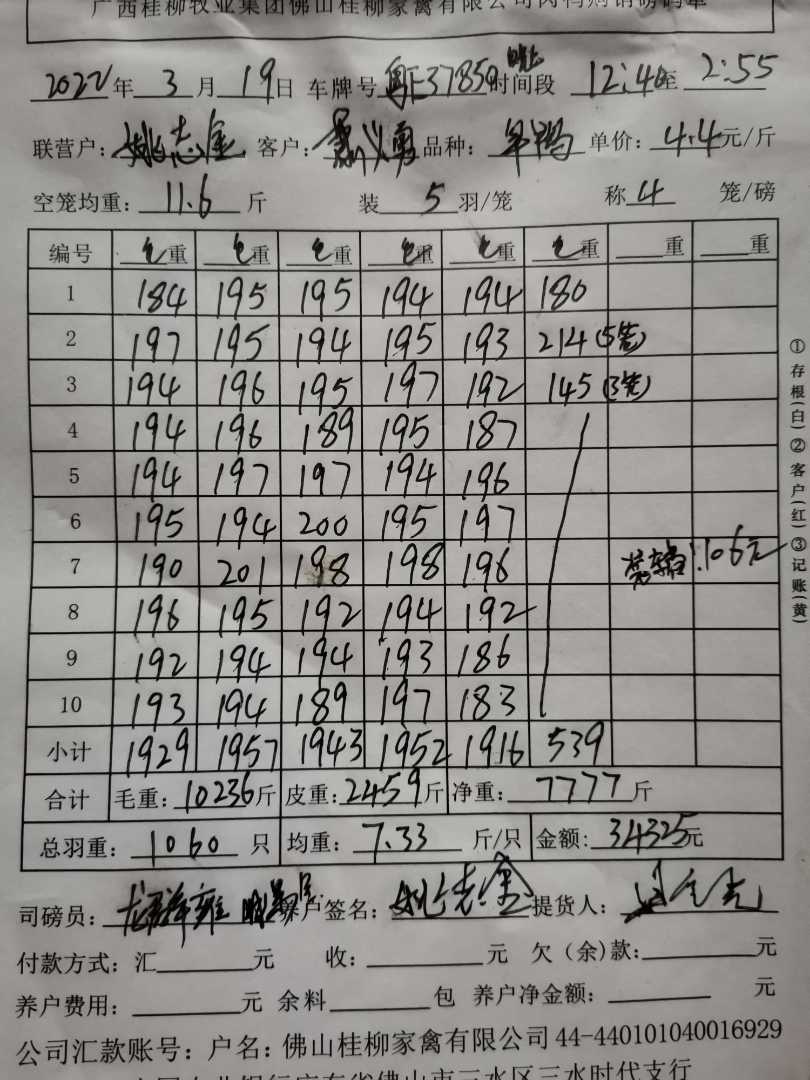 广西桂柳牧业集团佛山桂柳家禽有限公司肉鸭购销磅码单
2022年 3月 19日 车牌号 粤E37850 时间段 12:40至 2:55
联营户:姚志金 客户: 品种: 单价:4.4元/斤
空笼均重:11.6斤 装5羽/笼 称4笼/磅
编号 毛重 毛重 毛重 毛重 毛重 毛重 重 重
1 184 195 195 194 194 180
2 197 195 194 195 193 214(5笼)
3 194 196 195 197 192 145(3笼)
4 194 196 189 195 187
5 194 197 197 194 196
6 195 194 200 195 197
7 190 201 198 198 196 :106元
8 196 195 192 194 192
9 192 194 194 193 186
10 193 194 189 197 183
小计 1929 1957 1943 1952 1916 539
合计 毛重:10236斤 皮重:2459斤 净重:7777斤
总羽重:1060只 均重:7.33斤/只 金额:34325元
司磅员: 养户签名:姚志金 提货人:
付款方式:汇 元 收: 元 欠(余)款: 元
养户费用: 元 余料 包 养户净金额: 元
公司汇款账号:户名:佛山桂柳家禽有限公司44-440101040016929
佛山市三水区三水时代支行
①存根(白)②客户(红)③记账(黄)